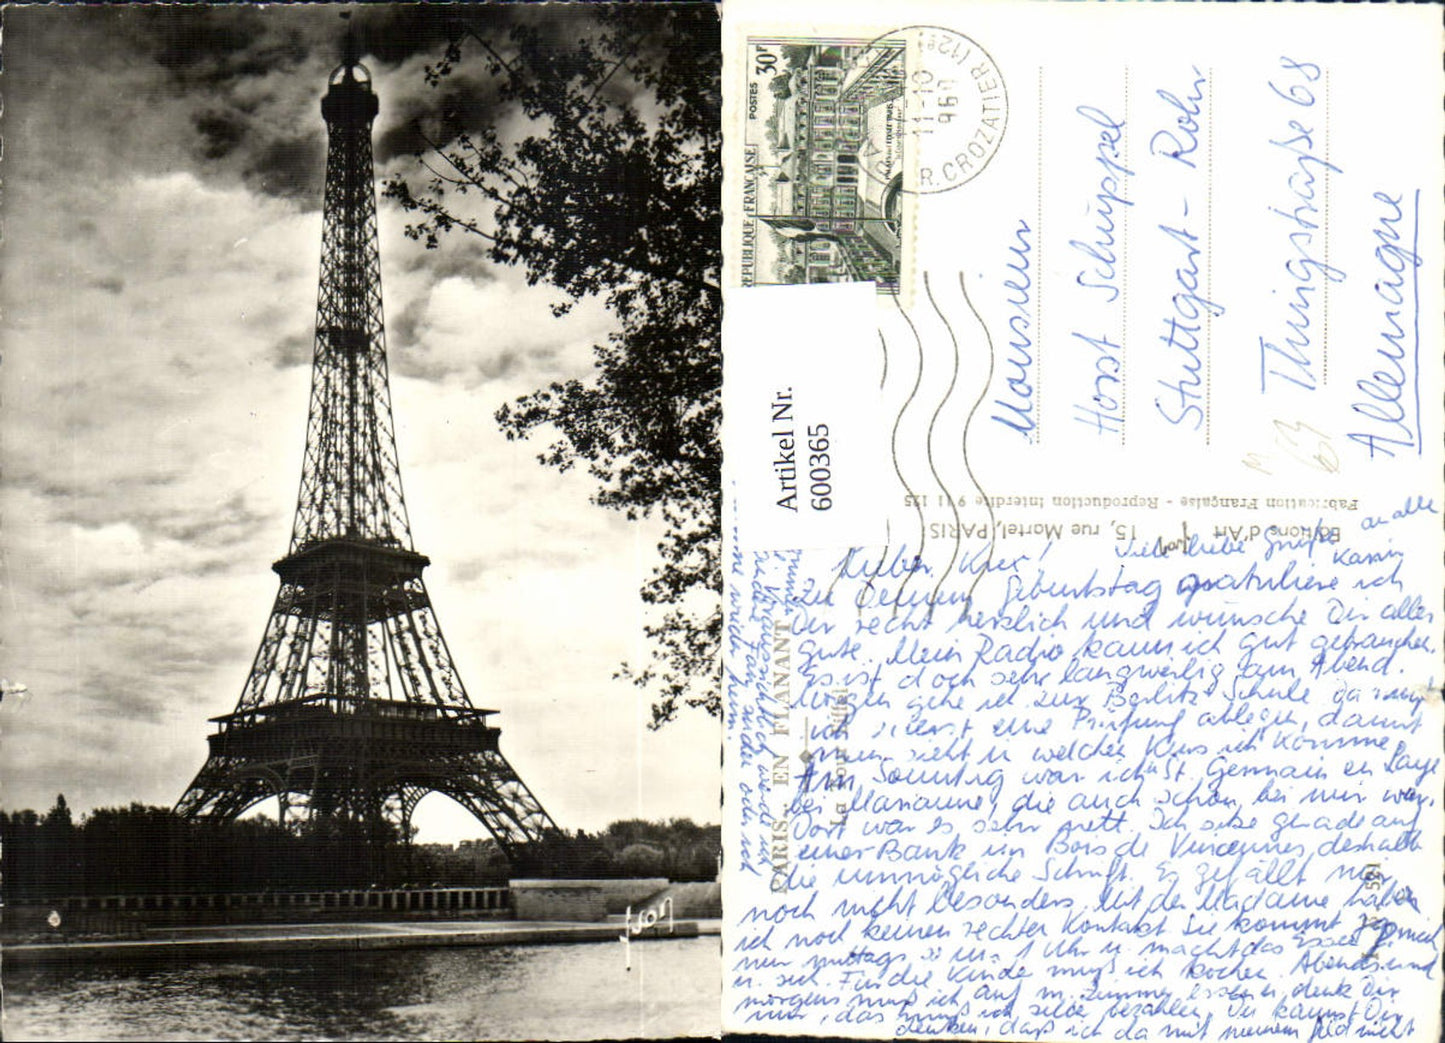 yvon
30F
POSTES
REPUBLIQUE FRANÇAISE
11-10
960
R. CROZATIER (12e)
Artikel Nr.
600365
Monsieur
Horst Schüppel
Stuttgart - Rohr
Thingstraße 68
Allemagne
63
Editions d'Art yvon 15, rue Martel, PARIS
Fabrication Française - Reproduction Interdite 9 11 125
PARIS... EN FLANANT
La Tour Eiffel
Viele liebe Grüße an alle
Karin
Lieber
Zu Deinem Geburtstag gratuliere ich
Dir recht herzlich und wünsche Dir alles
Gute. Mein Radio kann ich gut gebrauchen.
Es ist doch sehr langweilig am Abend.
Morgen gehe ich zur Berlitz-Schule da muß
ich zuerst eine Prüfung ablegen, damit
man sieht in welchen Kurs ich komme.
Am Sonntag war ich in St. Germain en Laye
bei Marianne, die auch schon bei mir war.
Dort war es sehr nett. Ich sitze gerade auf
einer Bank im Bois de Vincennes, deshalb
die unmögliche Schrift. Es gefällt mir
noch nicht besonders. Mit der Madame habe
ich noch keinen rechten Kontakt. Sie kommt
nur mittags so um 1 Uhr u. macht das Essen
u. Für die Kinder muß ich kochen. Abends und
morgens muß ich auf m. Zimmer essen u. denk Dir
nur, das muß ich selbst bezahlen. Du kannst Dir
denken, daß ich da mit meinem Geld nicht